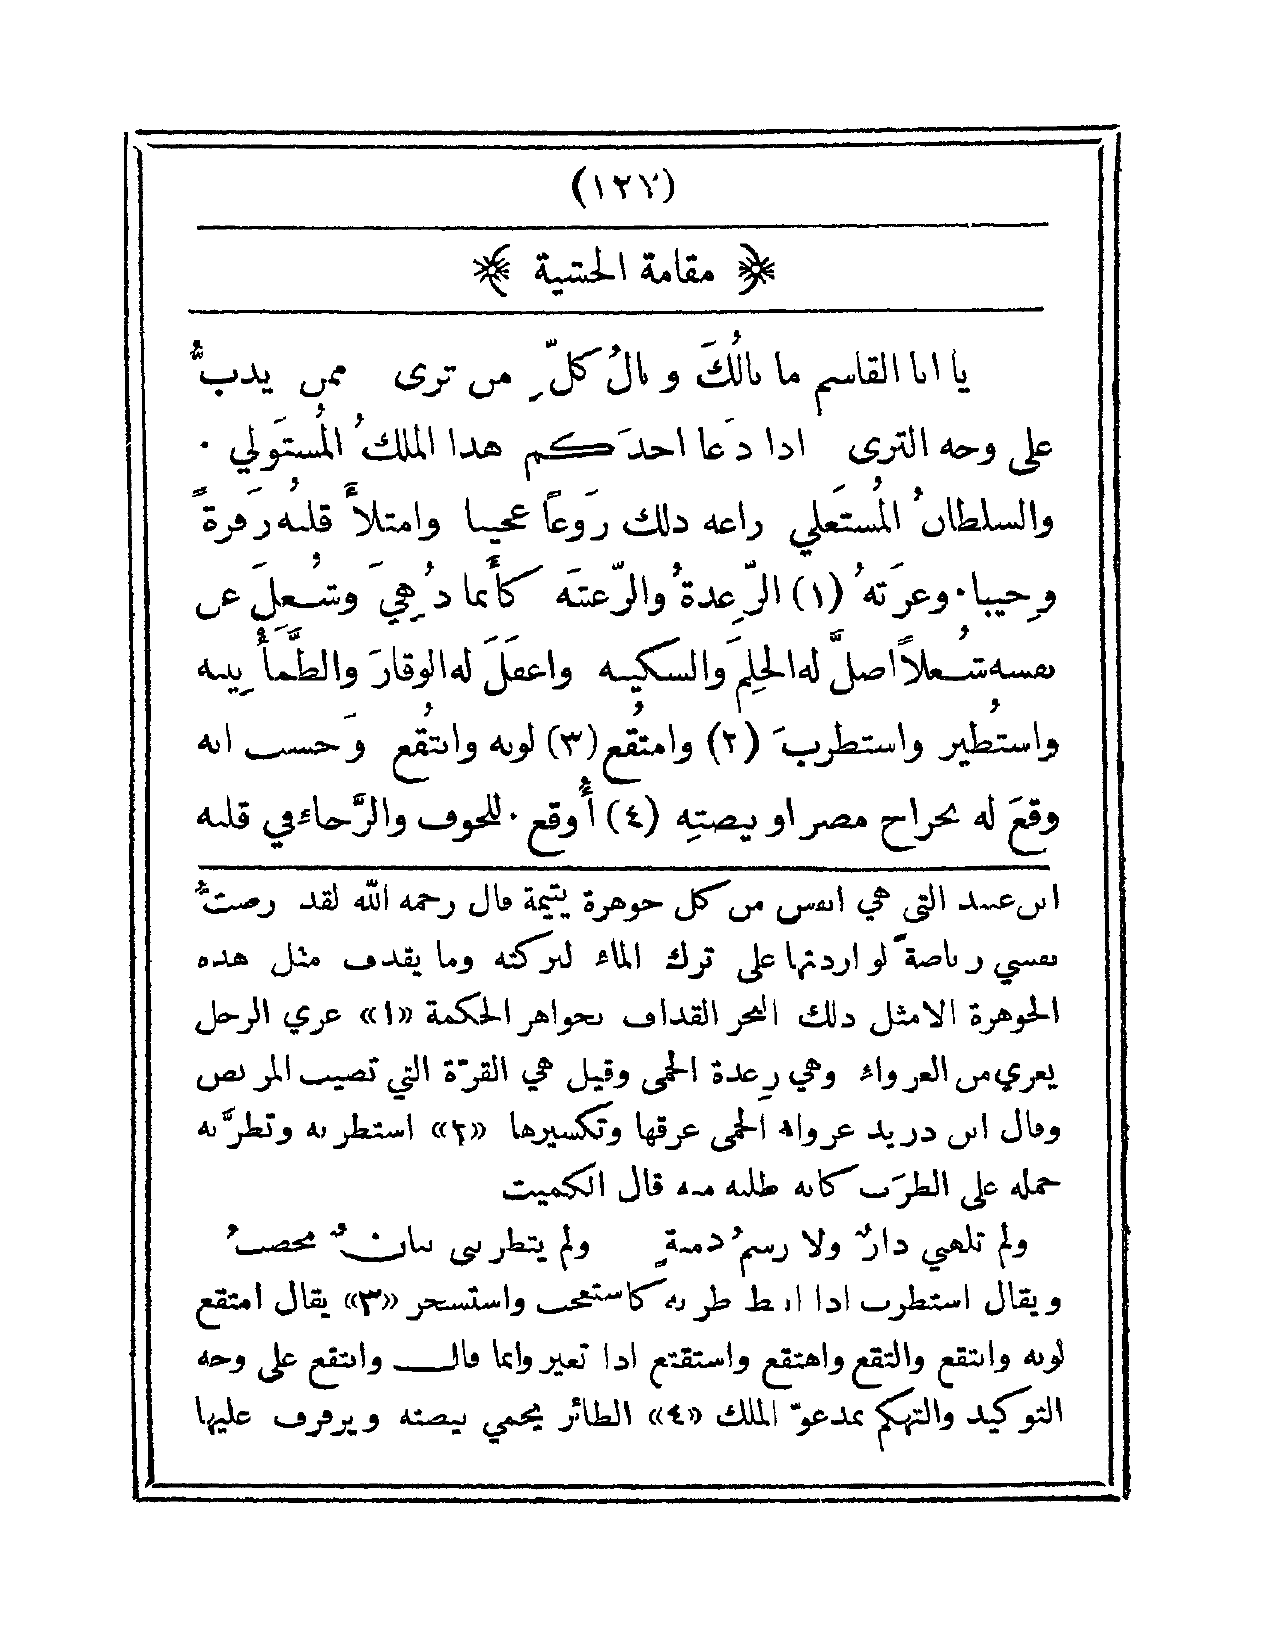 (١٢٧)
مقامة الخشية
يا ابا القاسم ما بالُكَ و بالُ كلِّ من ترى ممن يدبُّ
على وجه الثرى اذا دَعا احدَكم هذا الملكُ المُستَولي ·
والسلطانُ المُستَعلي راعه ذلك رَوعاً عجيبا وامتلأَ قلبُه زَفرةً
وجيبا · وعرَتهُ (١) الرِّعدةُ والرِّعشَة كأَنما دُهِيَ وشُعِلَ عن
نفسه شُعلاً اصلَّ له الحلِمَ والسكينه واعفَلَ له الوقارَ والطُّمأَنِينه
واستُطير واستطربَ (٢) وامتُقع (٣) لونه وانتُقع وَحسب انه
وقعَ له بجراح مصر او بيضتِه (٤) أُوقع · للخوف والرَّجاء في قلبه
ابن عبيد التي هي انفس من كل جوهرة يتيمة قال رحمه الله لقد رضتُ
نفسي رياضةً لو اردتها على ترك الماء لتركته وما يقذف مثل هذه
الجوهرة الا مثل ذلك البحر القذاف بجواهر الحكمة «١» عري الرجل
يعرى من العرواء وهي رِعدة الحمى وقيل هي القرّة التي تصيب المريض
وقال ابن دريد عرواء الحمى عرقها وتكسيرها «٢» استطر به وتطرَّبه
حمله على الطرَب كانه طلبه منه قال الكميت
ولم تلهني دارٌ ولا رسمُ دمنةٍ ولم يتطربني بنانٌ مخضبُ
ويقال استطرب اذا طرب طربه كاستعجب واستسخر «٣» يقال امتقع
لونه وانتقع والتقع واهتقع واستقنع اذا تغير وانما قال وانتقع على وجه
التوكيد والتهكم بمدعوّ الملك «٤» الطائر يحمي بيضته ويرفرف عليها